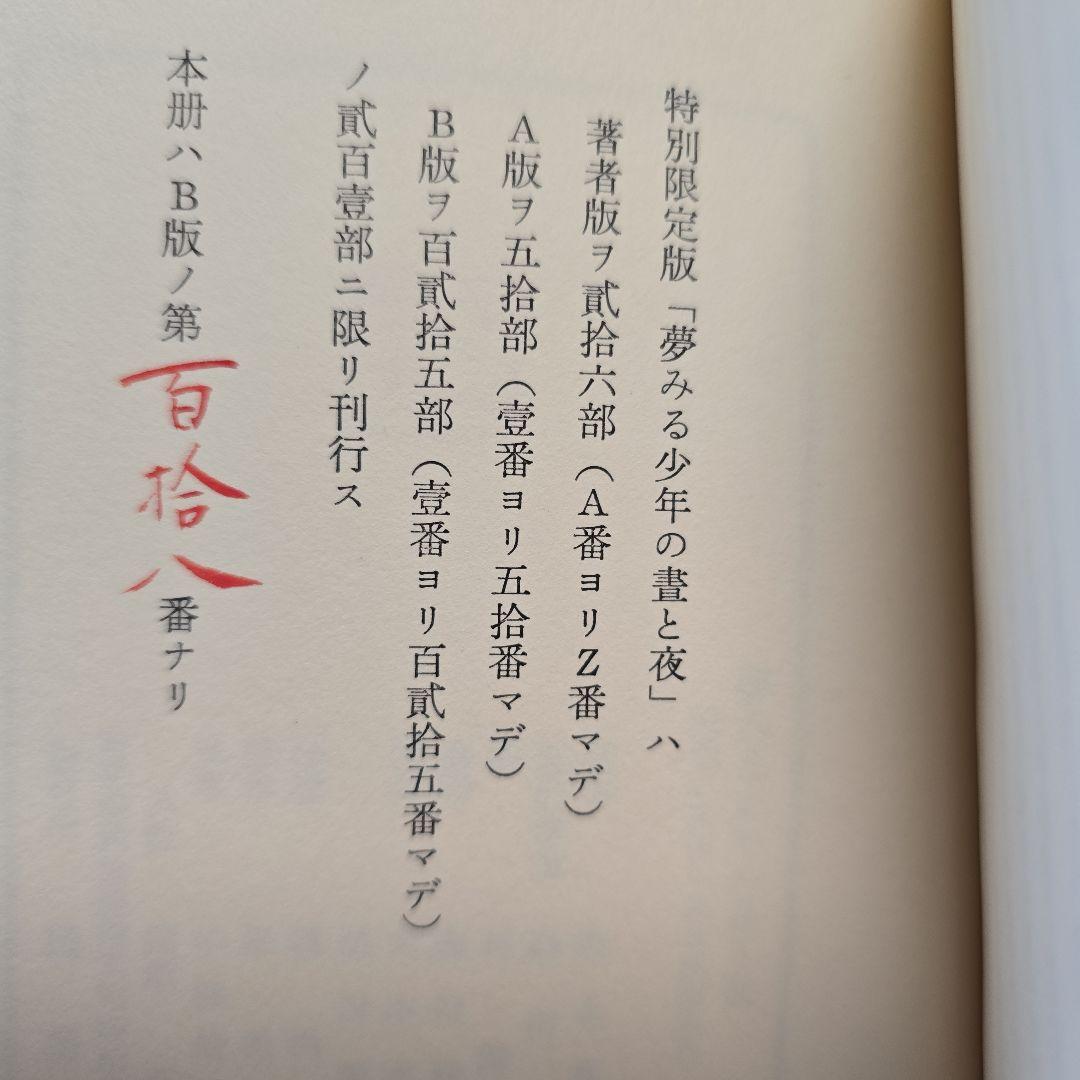 特別限定版「夢みる少年の晝と夜」ハ
著者版ヲ貳拾六部（A番ヨリZ番マデ）
A版ヲ五拾部（壹番ヨリ五拾番マデ）
B版ヲ百貳拾五部（壹番ヨリ百貳拾五番マデ）
ノ貳百壹部ニ限リ刊行ス
本册ハB版ノ第百拾八番ナリ